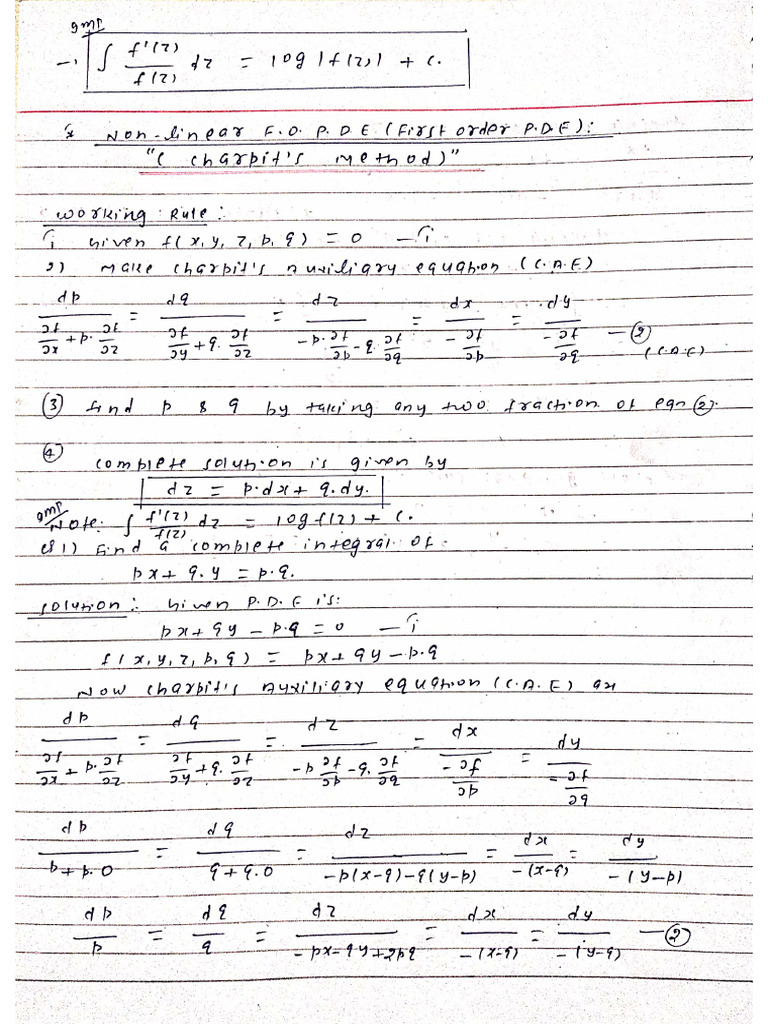 gmJ
→ ∫ f'(z)/f(z) dz = log|f(z)| + c.
* Non-linear F.O. P.D.E (First order P.D.E):
"( Charpit's Method)"
Working Rule:
i Given f(x, y, z, p, q) = 0 — i
2) Make Charpit's Auxiliary equation (C.A.E)
dp/(∂f/∂x + p.∂f/∂z) = dq/(∂f/∂y + q.∂f/∂z) = dz/(-p.∂f/∂p - q.∂f/∂q) = dx/(-∂f/∂p) = dy/(-∂f/∂q) — ② (C.A.E)
③ find p & q by taking any two fraction of eqn ②.
④ complete solution is given by
dz = p.dx + q.dy.
gmJ
Note: ∫ f'(z)/f(z) dz = log f(z) + c.
eg 1) Find a complete integral of
px + q.y = p.q.
Solution: Given P.D.E is:
px + qy - p.q = 0 — i
f(x, y, z, p, q) = px + qy - p.q
Now Charpit's Auxiliary equation (C.A.E) as
dp/(∂f/∂x + p.∂f/∂z) = dq/(∂f/∂y + q.∂f/∂z) = dz/(-p ∂f/∂p - q.∂f/∂q) = dx/(-∂f/∂p) = dy/(-∂f/∂q)
dp/(p + p.0) = dq/(q + q.0) = dz/(-p(x-q) - q(y-p)) = dx/(-(x-q)) = dy/(-(y-p))
dp/p = dq/q = dz/(-px - qy + 2pq) = dx/(-(x-q)) = dy/(-(y-q)) — ②